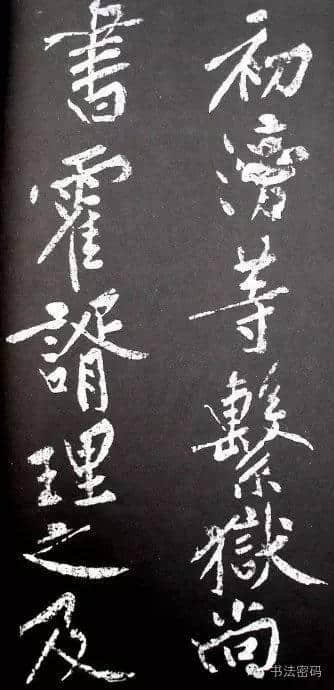 初滂等繫獄尚
書霍諝理之及
书法密码